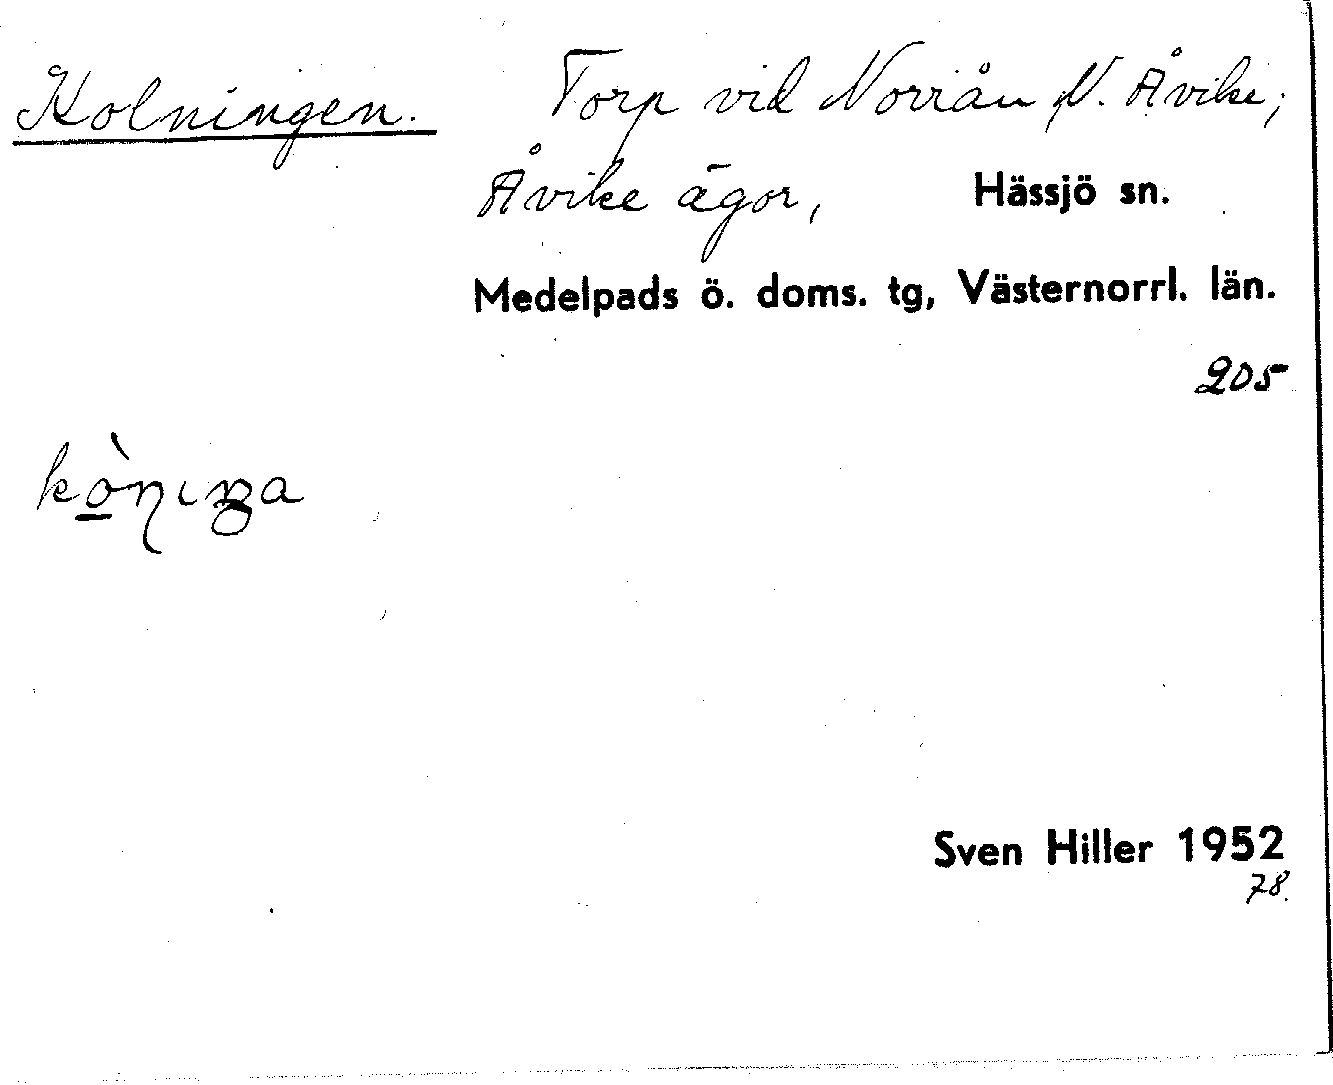 Kolningen. Torp vid Norrån N. Åvike;
Åvike ägor, Hässjö sn.
Medelpads ö. doms. tg, Västernorrl. län.
205
Sven Hiller 1952
78.